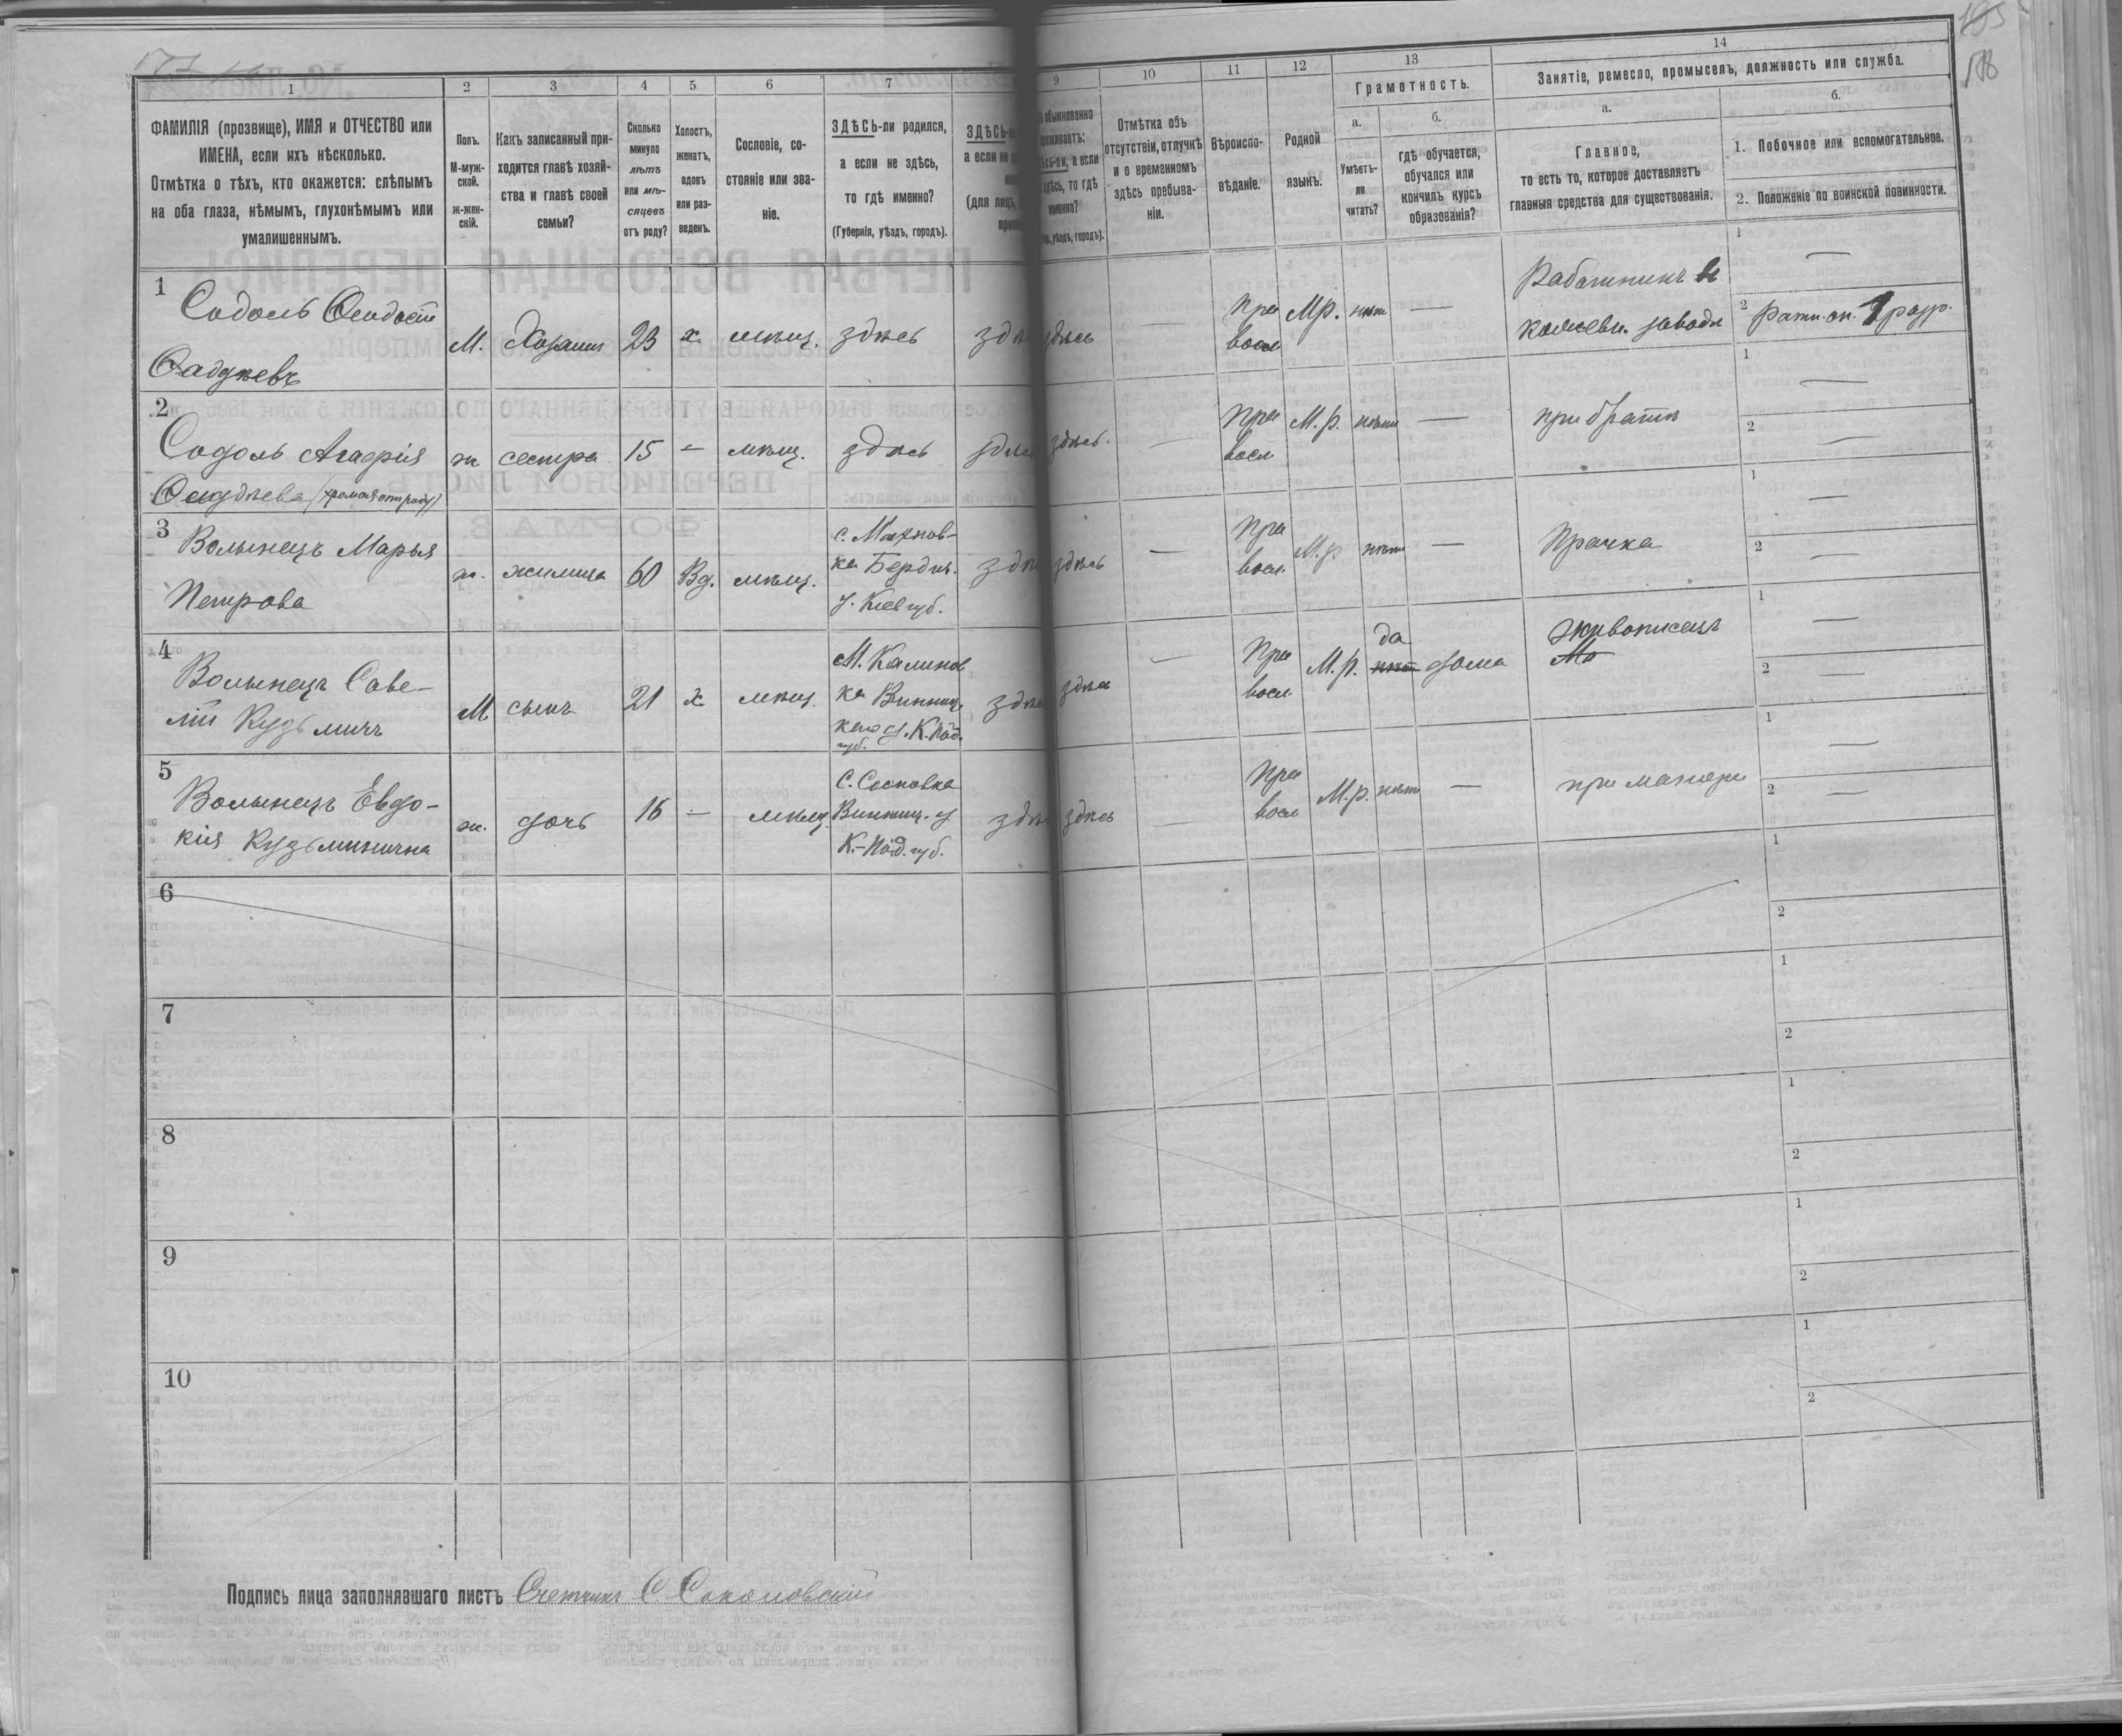 195
188
1
2
3
4
5
6
7
9
10
11
12
13
14
ФАМИЛІЯ (прозвище), ИМЯ и ОТЧЕСТВО или
ИМЕНА, если ихъ нѣсколько.
Отмѣтка о тѣхъ, кто окажется: слѣпымъ
на оба глаза, нѣмымъ, глухонѣмымъ или
умалишеннымъ.
Полъ.
М-муж-
ской.
ж-жен-
скій.
Какъ записанный при-
ходится главѣ хозяй-
ства и главѣ своей
семьи?
Сколько
минуло
лѣтъ
или мѣ-
сяцевъ
отъ роду?
Холостъ,
женатъ,
вдовъ
или раз-
веденъ.
Сословіе, со-
стояніе или зва-
ніе.
ЗДѢСЬ-ли родился,
а если не здѣсь,
то гдѣ именно?
(Губернія, уѣздъ, городъ).
ЗДѢСЬ
а если не
(для лицъ,
обыкновенно
а если
здѣсь, то гдѣ
именно?
уѣздъ, городъ).
Отмѣтка объ
отсутствіи, отлучкѣ
и о временномъ
здѣсь пребыва-
ніи.
Вѣроиспо-
вѣданіе.
Родной
языкъ.
Грамотность.
а.
б.
Умѣетъ-
ли
читать?
гдѣ обучается,
обучался или
кончилъ курсъ
образованія?
Занятіе, ремесло, промыселъ, должность или служба.
а.
б.
Главное,
то есть то, которое доставляетъ
главныя средства для существованія.
1. Побочное или вспомогательное.
2. Положеніе по воинской повинности.
1
Содоль Ѳеодосій
Фадѣевъ
М.
Хозяинъ
23
х.
мѣщ.
здѣсь
здѣ
здѣсь
—
Пра
восл
Мр.
нѣтъ
—
Работникъ въ
кожевн. заводѣ
1
—
2
Ратн. оп. 1 разр.
2
Содоль Агафія
Фаддѣева (хромая отъ роду)
ж
сестра
15
—
мѣщ.
здѣсь
здѣс
здѣсь.
—
Пра
восл
М.р.
нѣтъ
—
при братѣ
1
—
2
—
3
Волынецъ Марья
Петрова
ж.
жилица
60
Вд.
мѣщ.
с. Махнов-
ка Бердич.
у. Кіев губ.
здѣ
здѣсь
—
Пра
восл.
М.р
нѣтъ
—
Прачка
1
—
2
—
4
Волынецъ Саве-
лій Кузьмичъ
М.
сынъ
21
х.
мѣщ.
М. Калинов
ка Винниц
каго у. К.Под.
губ.
здѣ
здѣсь
—
Пра
восл
М.р.
да
нѣт
дома
Живописецъ
1
—
2
—
5
Волынецъ Евдо-
кія Кузьминична
ж.
дочь
16
—
мѣщ.
С. Сосновка
Винниц. у
К.-Под. губ.
здѣ
здѣсь
—
Пра
восл
М.р.
нѣтъ
—
при матери
1
—
2
—
6
1
2
7
1
2
8
1
2
9
1
2
10
1
2
Подпись лица заполнявшаго листъ Счетчикъ С Соколовскій